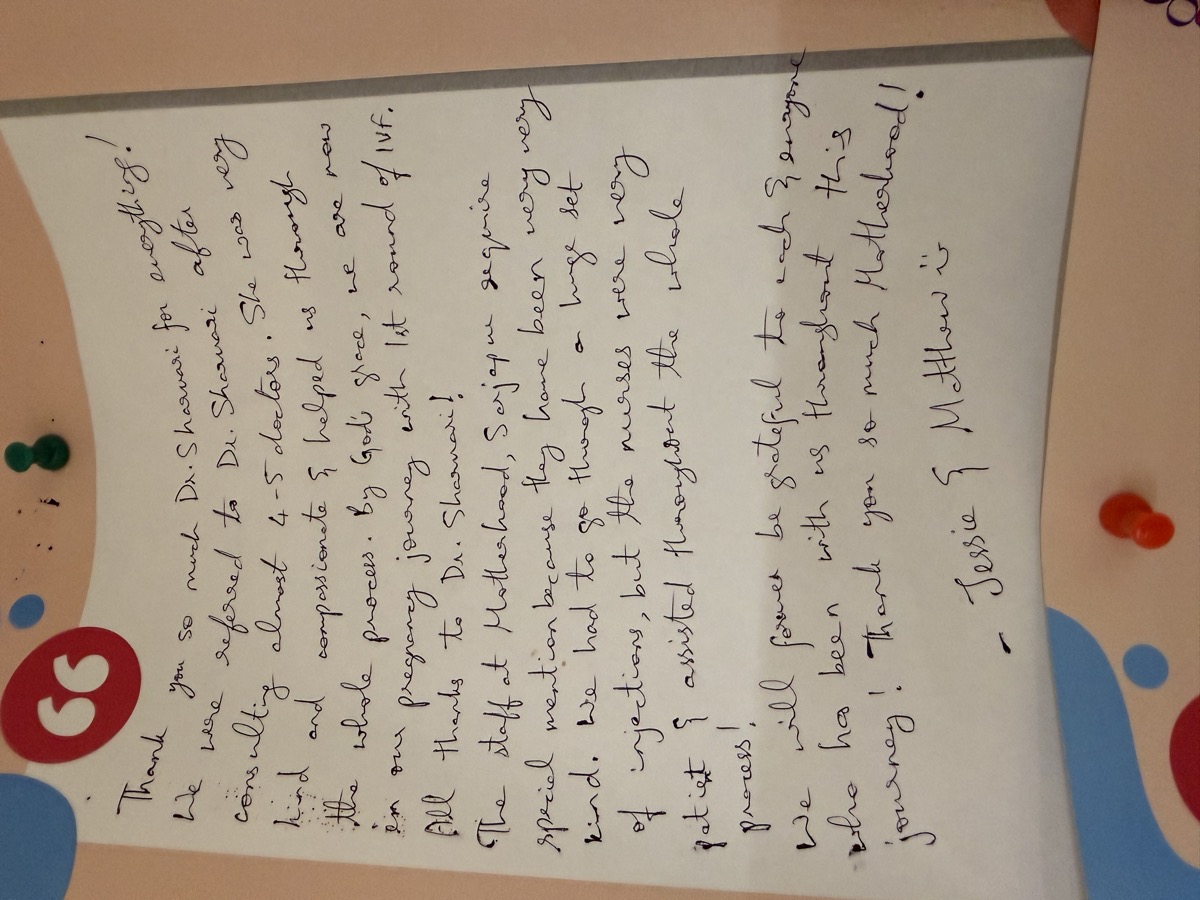 Thank you so much Dr. Sharvari for everything!
We were refered to Dr. Sharvari after
consulting almost 4-5 doctors. She was very
kind and compassionate & helped us through
the whole process. By God's grace, we are now
in our pregnancy journey with 1st round of IVF.
All thanks to Dr. Sharvari!
The staff at Motherhood, Sarjapur require
special mention because they have been very very
kind. We had to go through a huge set
of injections, but the nurses were very
patient & assisted throughout the whole
process!
We will forever be grateful to each & everyone
who has been with us throughout this
journey! Thank you so much Motherhood!
- Jessie & Matthew